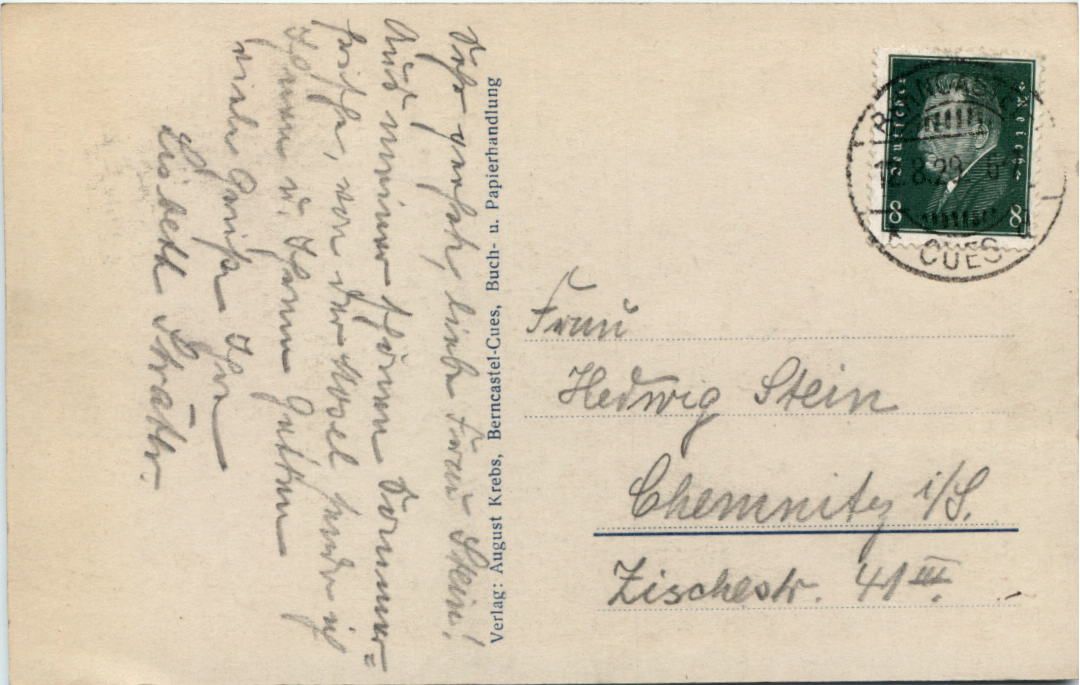 Sehr geehrte, liebe Frau Stein!
Aus meiner schönen Sommer=
frische, von der Mosel sende ich
Ihnen u. Ihrem Gatten
viele Grüße Ihre
Lisbeth
Verlag: August Krebs, Berncastel-Cues, Buch- u. Papierhandlung
Deutsches Reich
8 8
BERNCASTEL
12.8.29
CUES
Frau
Hedwig Stein
Chemnitz i/S.
Zischestr. 41 III.